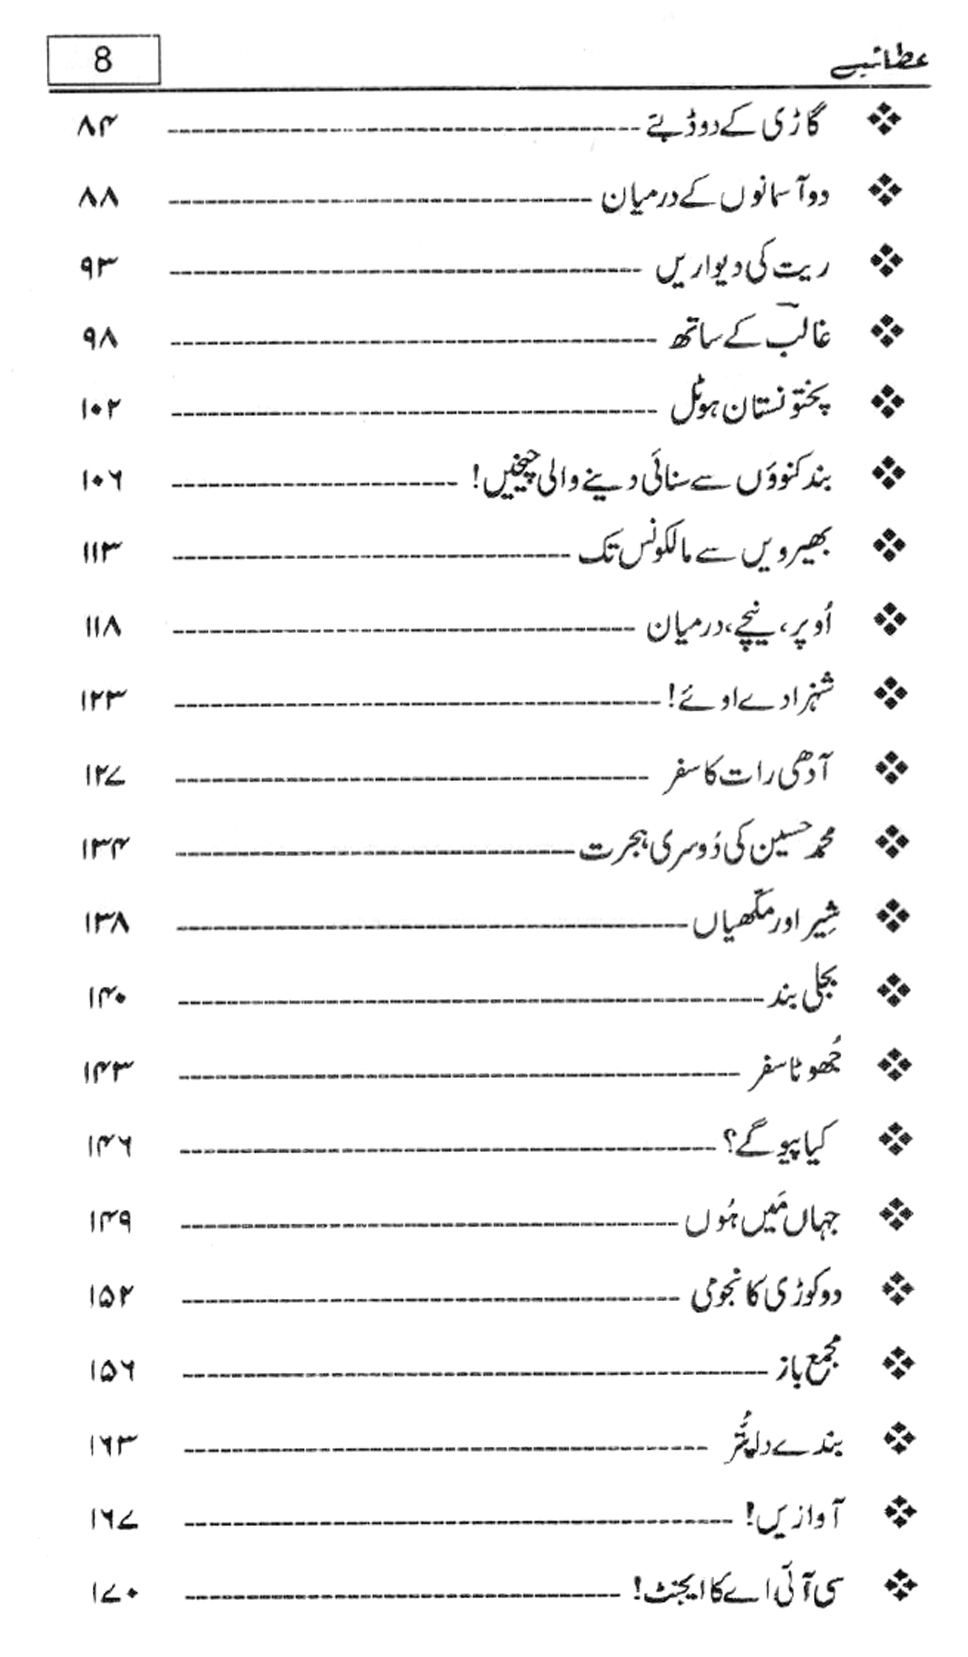 عطائیے 8
گاڑی کے دو ڈبّے ۸۴
دو آسمانوں کے درمیان ۸۸
ریت کی دیواریں ۹۳
غالبؔ کے ساتھ ۹۸
پختونستان ہوٹل ۱۰۲
بند کنوؤں سے سنائی دینے والی چیخیں! ۱۰۶
بھیرویں سے مالکونس تک ۱۱۳
اُوپر، نیچے، درمیان ۱۱۸
شہزادے اوئے! ۱۲۳
آدھی رات کا سفر ۱۲۷
محمد حسین کی دُوسری ہجرت ۱۳۴
شِیر اور مکّھیاں ۱۳۸
بجلی بند ۱۴۰
جُھوٹا سفر ۱۴۳
کیا پیو گے؟ ۱۴۶
جہاں مَیں ہُوں ۱۴۹
دو کوڑی کا نجومی ۱۵۲
مجمع باز ۱۵۶
بندے دا پُتّر ۱۶۳
آوازیں! ۱۶۷
سی آئی اے کا ایجنٹ! ۱۷۰